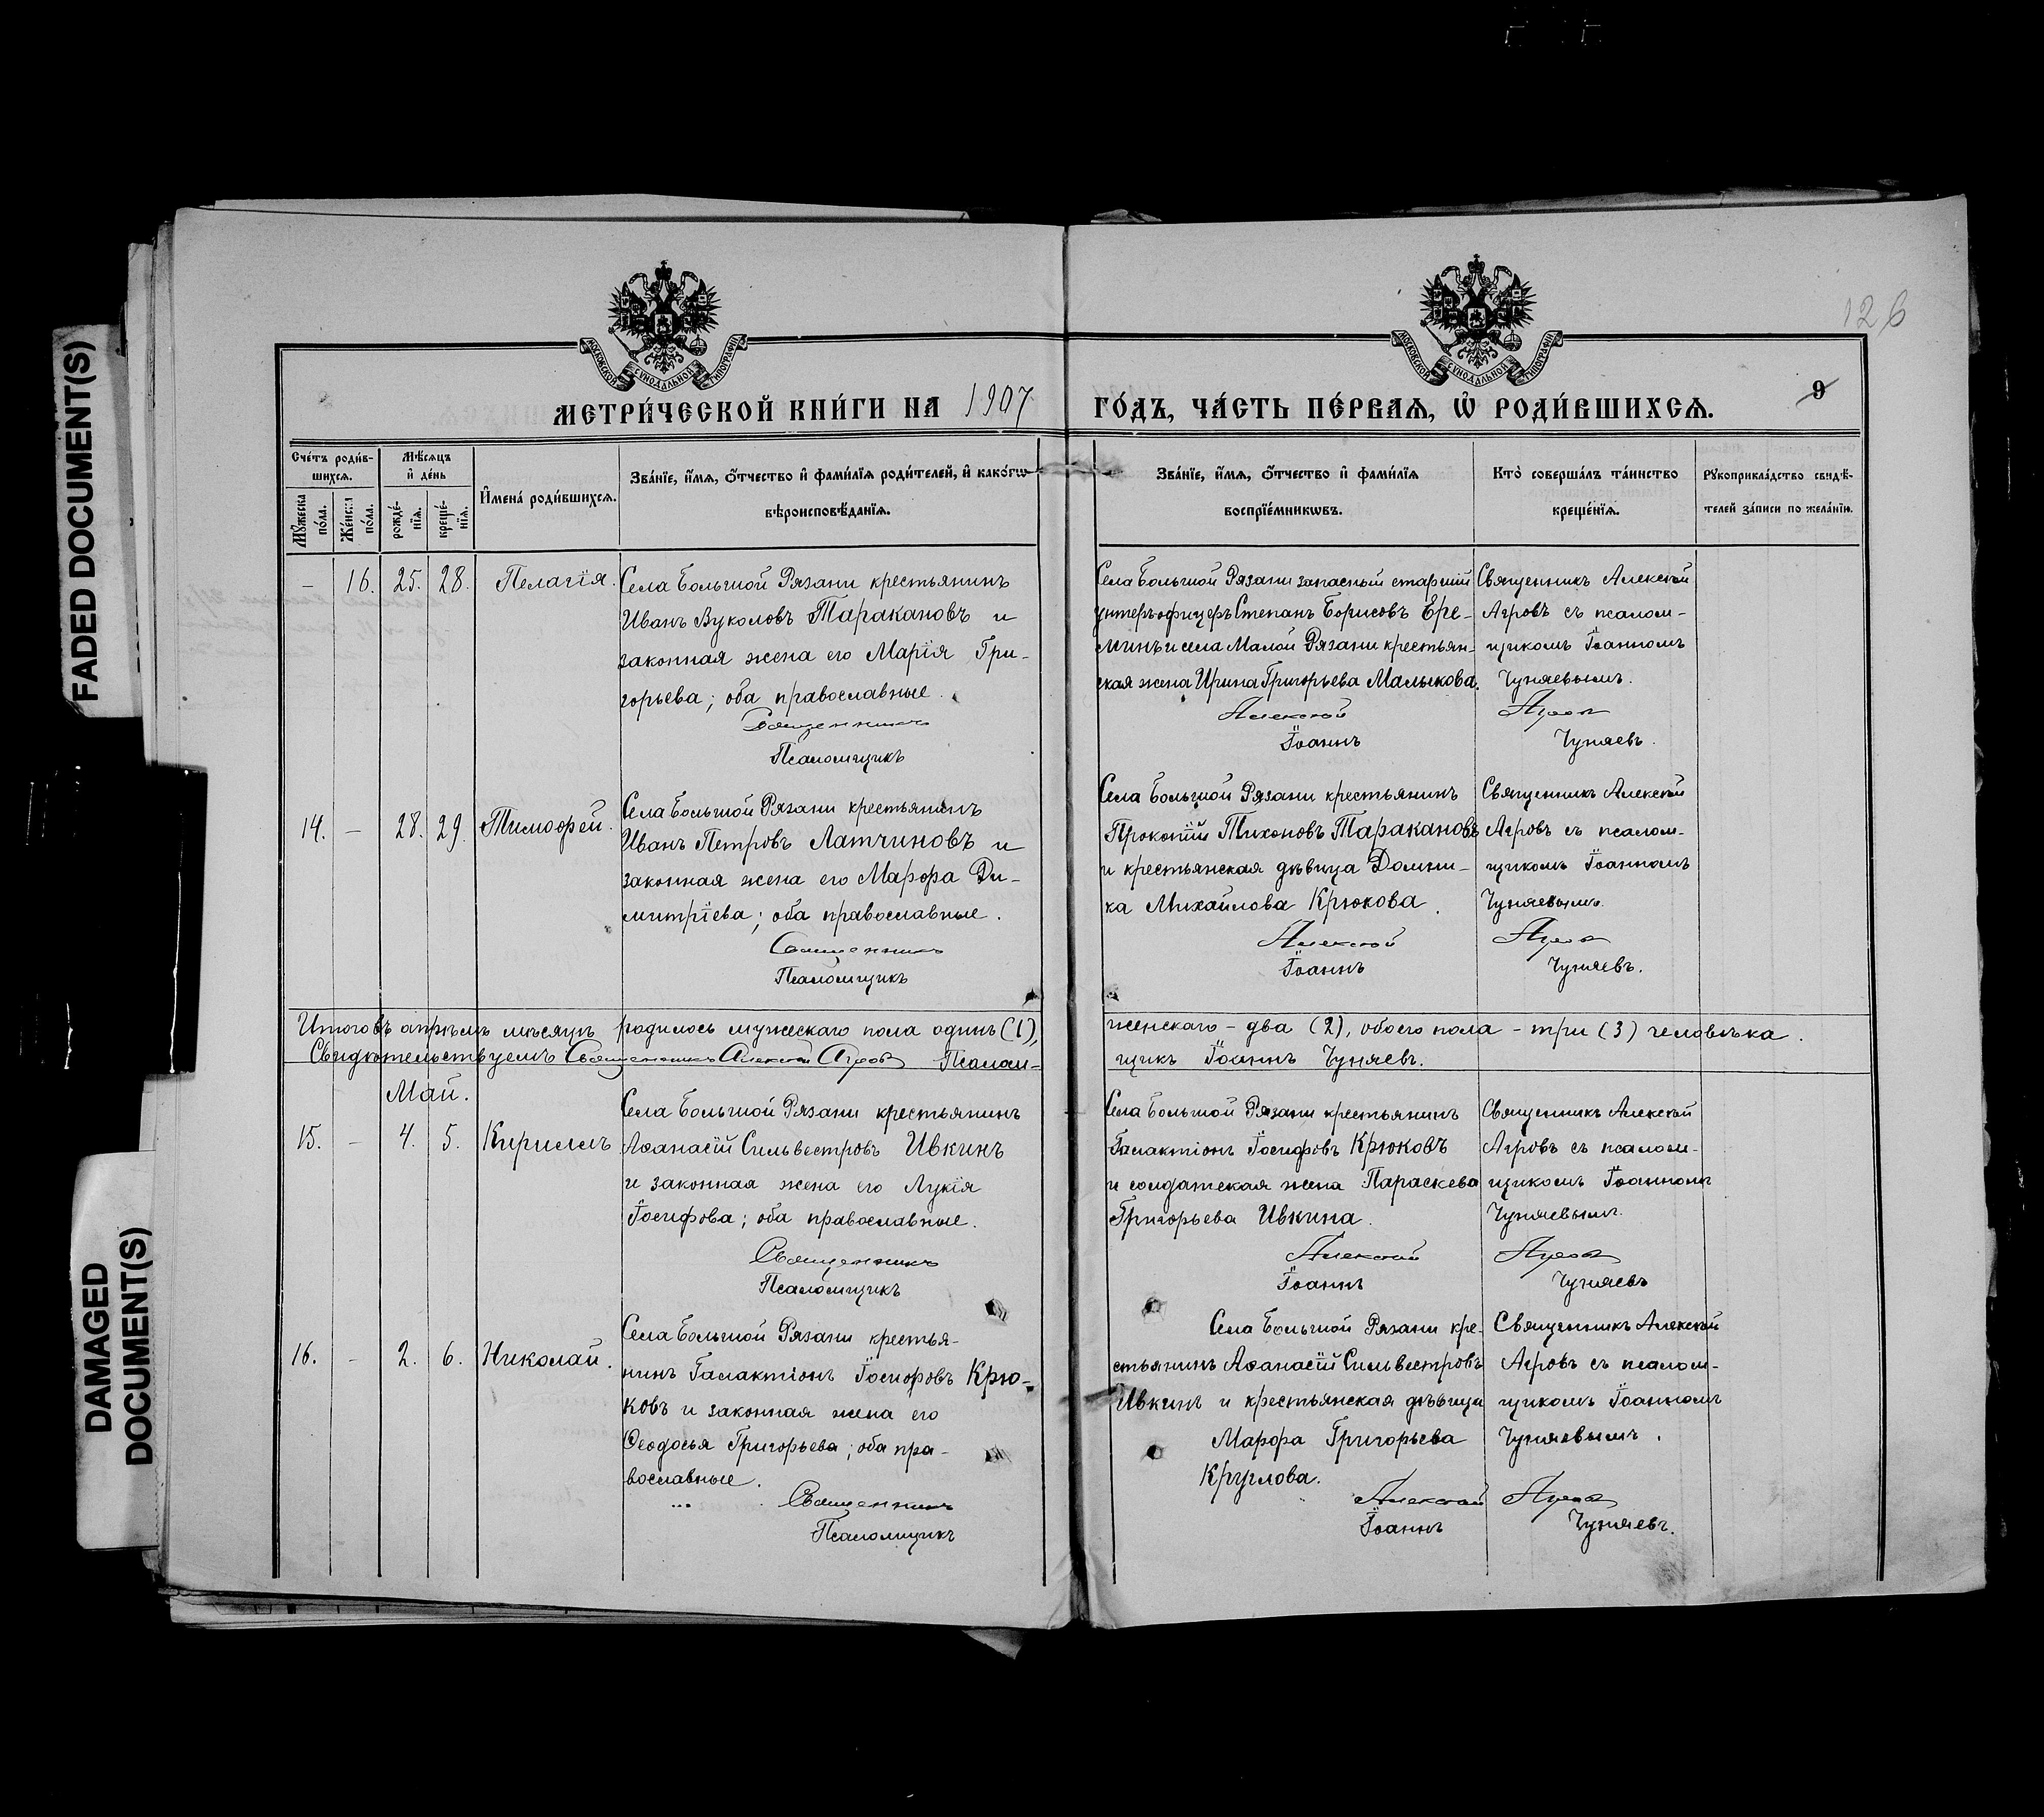 FADED DOCUMENT(S)
DAMAGED
DOCUMENT(S)
126
МОСКОВСКОЙ СѴНОДАЛЬНОЙ ТИПОГРАФІИ
МОСКОВСКОЙ СѴНОДАЛЬНОЙ ТИПОГРАФІИ
9
МЕТРИ́ЧЕСКОЙ КНИ́ГИ НА 1907
ГО́ДЪ, ЧА́СТЬ ПЕ́РВАѦ, Ѡ҆ РОДИ́ВШИХСѦ.
Сче́тъ роди́в-
шихсѧ.
Мꙋжеска по́ла.
Же́нска по́ла.
Мѣ́сѧцъ
и҆ де́нь
рожде́-
нїѧ.
креще́-
нїѧ.
И҆мена̀ роди́вшихсѧ.
Зва́нїе, и҆́мѧ, ѻ҆́тчество и҆ фами́лїѧ роди́телей, и҆ како́гѡ
вѣроисповѣ́данїѧ.
Зва́нїе, и҆́мѧ, ѻ҆́тчество и҆ фами́лїѧ
воспрїе́мникѡвъ.
Кто̀ соверша́лъ та́инство
креще́нїѧ.
Рꙋкоприкла́дство свидѣ́-
телей за́писи по жела́нїю.
– 16. 25. 28. Пелагія.
Села Большой Рязани крестьянинъ
Иванъ Вуколовъ Таракановъ и
законная жена его Марія Гри-
горьева; оба православные.
Священникъ
Псаломщикъ
Села Большой Рязани запасный старшій
унтеръофицеръ Степанъ Борисовъ Ере-
минъ и села Малой Рязани крестьян-
ская жена Ирина Григорьева Малыкова.
Алексѣй
Іоаннъ
Священникъ Алексѣй
Агровъ съ псалом-
щикомъ Іоанномъ
Чуняевымъ.
Агровъ
Чуняевъ.
14. – 28. 29. Тимоѳей.
Села Большой Рязани крестьянинъ
Иванъ Петровъ Латчиновъ и
законная жена его Марѳа Ди-
митріева; оба православные.
Священникъ
Псаломщикъ
Села Большой Рязани крестьянинъ
Прокопій Тихоновъ Таракановъ
и крестьянская дѣвица Домни-
ка Михайлова Крюкова.
Алексѣй
Іоаннъ
Священникъ Алексѣй
Агровъ съ псалом-
щикомъ Іоанномъ
Чуняевымъ.
Агровъ
Чуняевъ.
Итого въ апрѣлѣ мѣсяцѣ родилось мужескаго пола одинъ (1),
женскаго – два (2), обоего пола – три (3) человѣка.
Свидѣтельствуемъ Священникъ Алексѣй Агровъ Псалом-
щикъ Іоаннъ Чуняевъ.
Май.
15. – 4. 5. Кириллъ
Села Большой Рязани крестьянинъ
Аѳанасій Сильвестровъ Ивкинъ
и законная жена его Лукія
Іосифова; оба православные.
Священникъ
Псаломщикъ
Села Большой Рязани крестьянинъ
Галактіонъ Іосифовъ Крюковъ
и солдатская жена Параскева
Григорьева Ивкина.
Алексѣй
Іоаннъ
Священникъ Алексѣй
Агровъ съ псалом-
щикомъ Іоанномъ
Чуняевымъ.
Агровъ
Чуняевъ
16. – 2. 6. Николай.
Села Большой Рязани крестья-
нинъ Галактіонъ Іосифовъ Крю-
ковъ и законная жена его
Ѳеодосья Григорьева; оба пра-
вославные.
Священникъ
Псаломщикъ
Села Большой Рязани кре-
стьянинъ Аѳанасій Сильвестровъ
Ивкинъ и крестьянская дѣвица
Марѳа Григорьева
Круглова.
Алексѣй
Іоаннъ
Священникъ Алексѣй
Агровъ съ псалом-
щикомъ Іоанномъ
Чуняевымъ.
Агровъ
Чуняевъ.